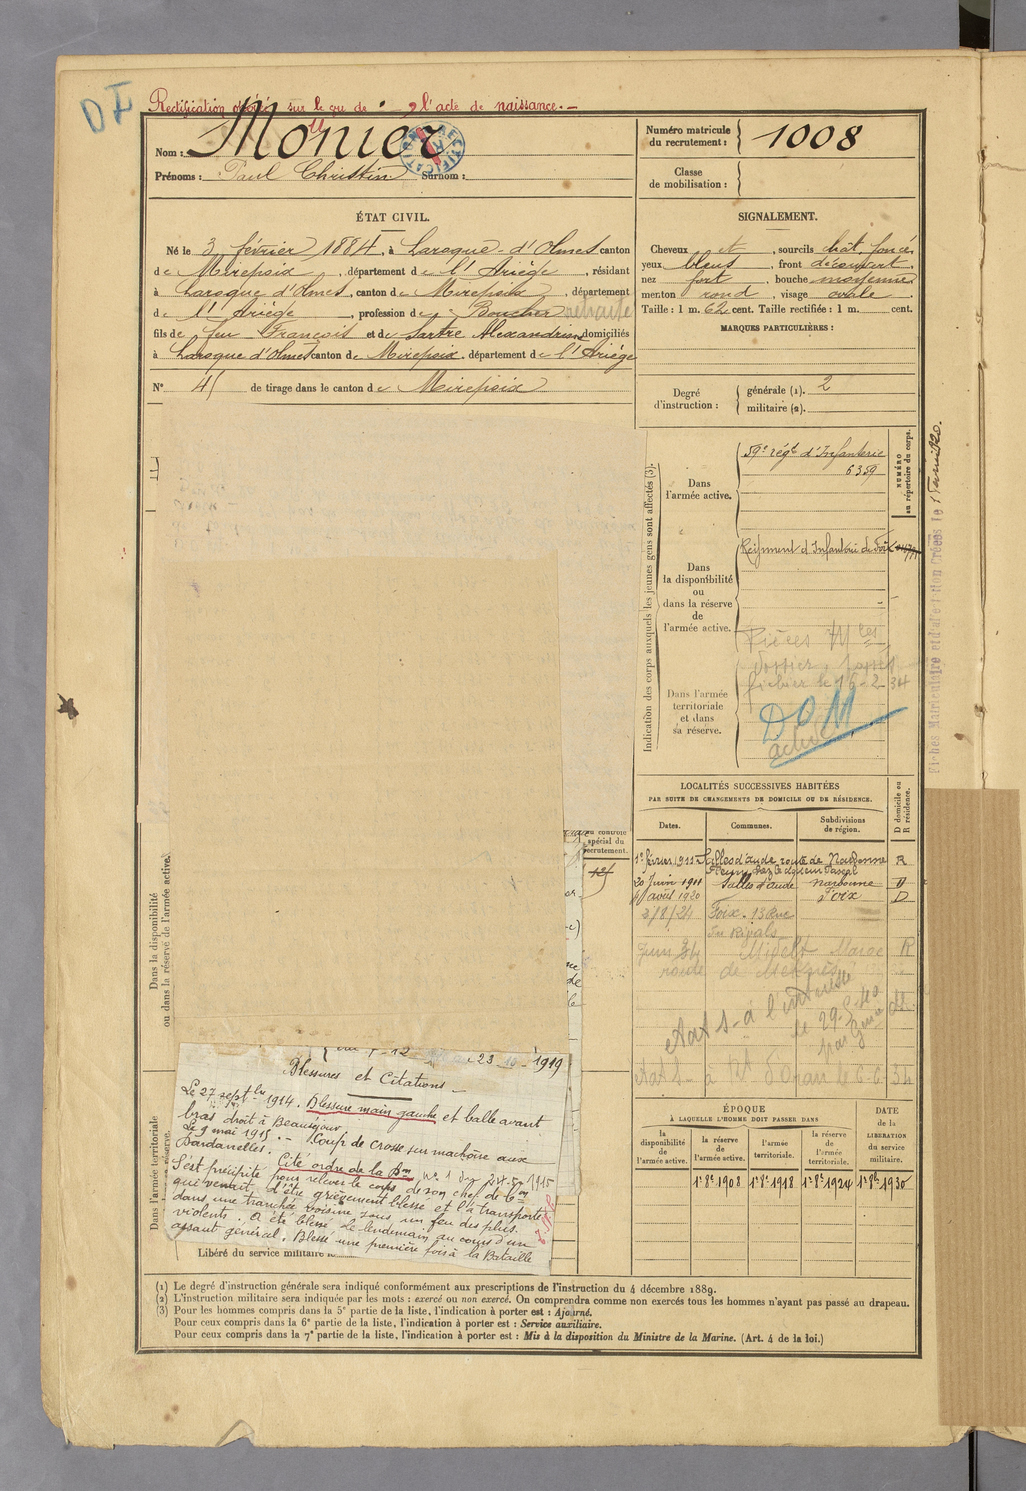 DI
Rectification opérée sur le vu de l'acte de naissance. —
Nom : Monier
Prénoms : Paul Christin Surnom :
RECTIFICATION
Numéro matricule du recrutement : 1008
Classe de mobilisation :
ÉTAT CIVIL.
Né le 3 février 1884, à Laroque-d'Olmes canton
de Mirepoix, département de l'Ariège, résidant
à Laroque d'Olmes, canton de Mirepoix, département
de l'Ariège, profession de Boucher retraité
fils de feu François et de Sartre Alexandrine domiciliés
à Laroque d'Olmes canton de Mirepoix département de l'Ariège
N° 45 de tirage dans le canton de Mirepoix
SIGNALEMENT.
Cheveux et, sourcils chât. foncé,
yeux bleus, front découvert,
nez fort, bouche moyenne
menton rond, visage ovale.
Taille : 1 m. 62 cent. Taille rectifiée : 1 m. cent.
MARQUES PARTICULIÈRES :
Degré d'instruction : générale (1). 2
militaire (2).
Indication des corps auxquels les jeunes gens sont affectés (3).
NUMÉRO au répertoire du corps.
Dans l'armée active.
59e régt d'Infanterie
6359
Dans la disponibilité ou dans la réserve de l'armée active.
Régiment d'Infanterie de Foix
Pièces Mles
dossier
fichier le 16-2-34
Dans l'armée territoriale et dans sa réserve.
DOM
active
Fiches Matriculaire et d'affectation créées le
LOCALITÉS SUCCESSIVES HABITÉES
PAR SUITE DE CHANGEMENTS DE DOMICILE OU DE RÉSIDENCE.
Dates. Communes. Subdivisions de région. D domicile ou R résidence.
1er février 1911 Salles d'aude route de Narbonne R
20 Juin 1911 Salles d'aude Narbonne D
6 août 1920 Foix D
3/8/24 Foix. 13 Rue
des Rivals
Juin 34 Midelt Maroc R
route de Meknès
à l'intéressé
le 29-5-40
à d'Oran le 6-6-34
au contrôle spécial du recrutement.
Dans la disponibilité ou dans la réserve de l'armée active.
Dans l'armée territoriale et dans sa réserve.
23 1919
Blessures et Citations —
Le 27 septbre 1914. Blessure main gauche et balle avant
bras droit à Beauséjour
Le 9 mai 1915. — Coup de crosse sur machoire aux
Dardanelles. Cité ordre de la Bde N° 1 du 24-5-1915
S'est précipité pour relever le corps de son chef de Bon
qui venait d'être grièvement blessé et l'a transporté
dans une tranchée voisine sous un feu des plus
violents. A été blessé le lendemain au cours d'un
assaut général. Blessé une première fois à la Bataille
Libéré du service militaire le
ÉPOQUE
À LAQUELLE L'HOMME DOIT PASSER DANS
DATE de la LIBERATION du service militaire.
la disponibilité de l'armée active. la réserve de l'armée active. l'armée territoriale. la réserve de l'armée territoriale.
1er 8bre 1908 1er 8bre 1918 1er 8bre 1924 1er 8bre 1930
(1) Le degré d'instruction générale sera indiqué conformément aux prescriptions de l'instruction du 4 décembre 1889.
(2) L'instruction militaire sera indiquée par les mots : exercé ou non exercé. On comprendra comme non exercés tous les hommes n'ayant pas passé au drapeau.
(3) Pour les hommes compris dans la 5e partie de la liste, l'indication à porter est : Ajourné.
Pour ceux compris dans la 6e partie de la liste, l'indication à porter est : Service auxiliaire.
Pour ceux compris dans la 7e partie de la liste, l'indication à porter est : Mis à la disposition du Ministre de la Marine. (Art. 4 de la loi.)